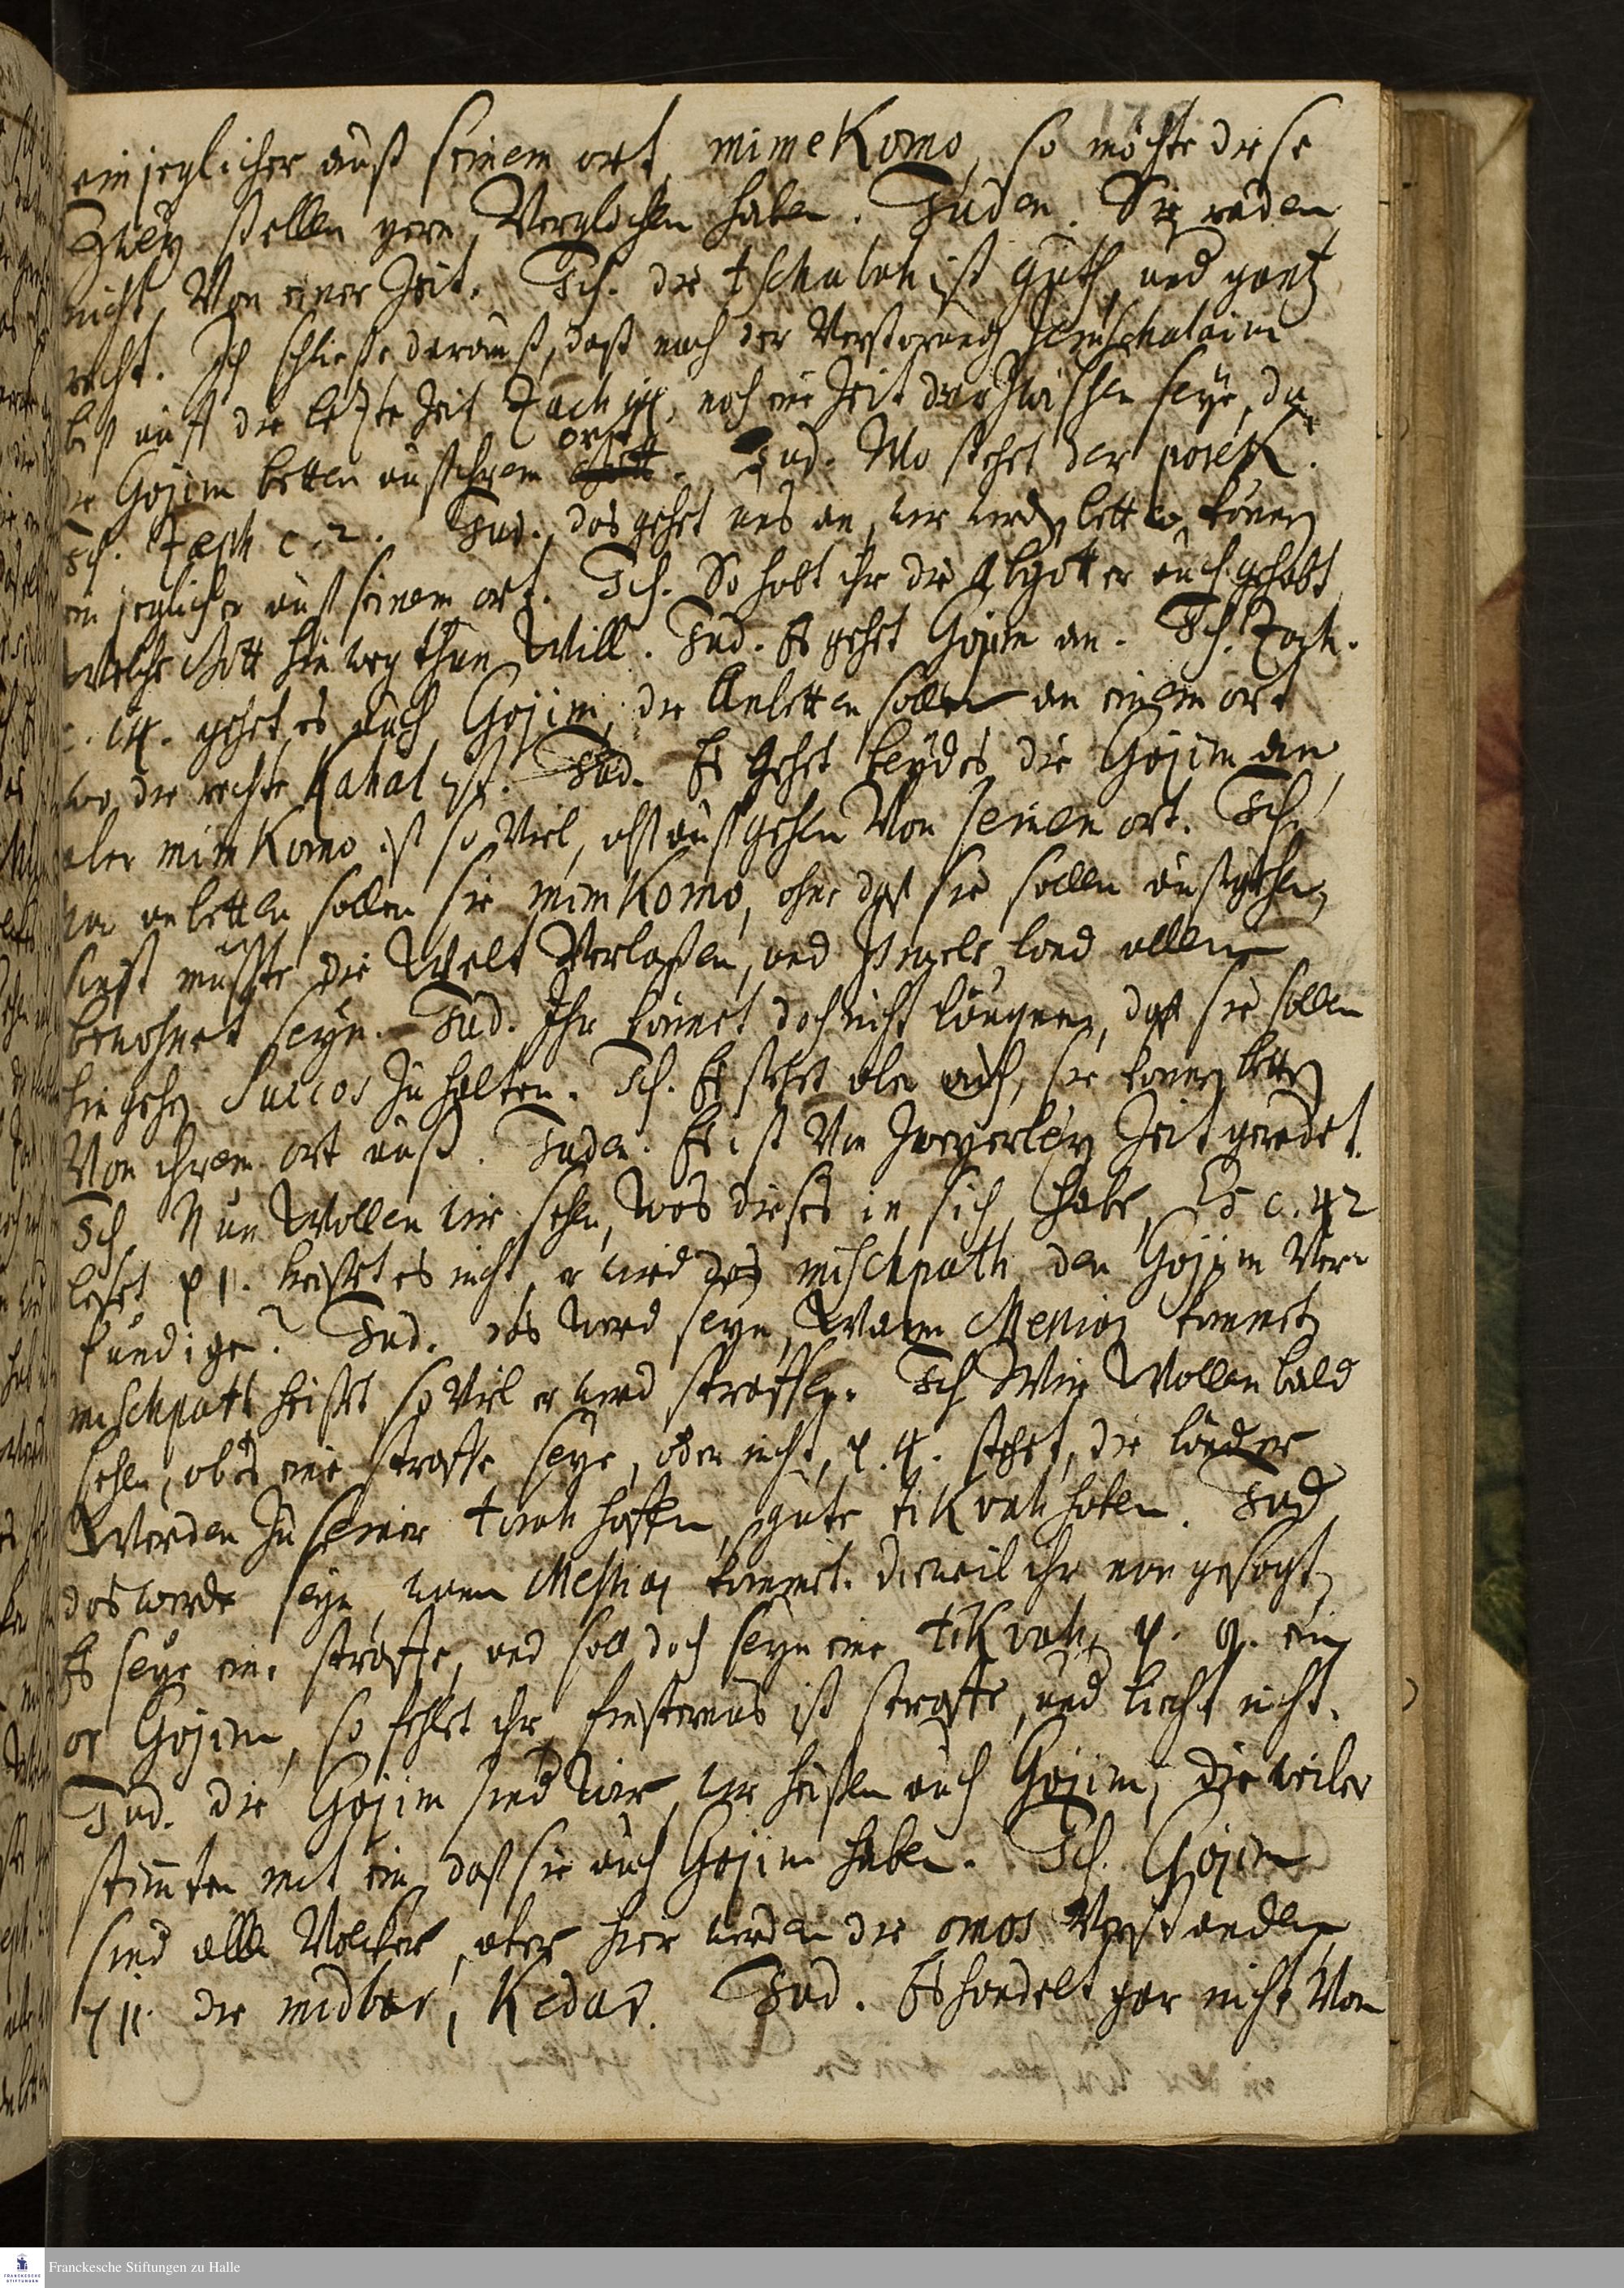 ein jeglicher auß seinem ort, mimekomo, so möchte diese
Zwey stellen gern Verglichen haben. Juden. Sie reden
nicht Von einer Zeit. Ich. die tschubah ist guth, und gantz
recht. Ich schließe darauß, daß nach der Verstorung Jeruschalaim
biß auff die letzte Zeit Zach 14, noch eine Zeit darzwischen seye, da
die Gojim betten auß ihrem ort. Jud. Wo stehet der posek.
Ich. Zeph c. 2. Jud. das gehet uns an, wir werden betten können
ein jeglicher auß seinem ort. Ich. So habt ihr die Abgötter auch gehabt
welche Gott hinweg thun Will. Jud. Es gehet Gojim an. Ich. Zach.
c. 14. gehet es auch Gojim, die Anbetten sollen an einem ort
wo die rechte Kahal ist. Jud. Es gehet beydes die Gojim an,
aber mimkomo ist so Viel, alß außgehen Von seinem ort. Ich.
Na anbetten sollen sie mimkomo, ohne daß sie sollen außgehen,
sonst müßte die Welt Verlaßen, und Israels land allein
bewohnet seyn. Jud. Ihr könnet doch nicht läugnen, daß sie sollen
hingehen Succos Zu halten. Ich. Es stehet aber auch, sie können betten
Von ihrem ort auß. Juden. Es ist Von Zweyerley Zeit geredet.
Ich Nun Wollen wir sehen, was dieses in sich habe, Es c. 42
leset p 1. heißet es nicht, er wird das mischpath den Gojim Ver-
kündigen? Jud. das wird seyn, Wann Messias kommet,
mischpath heißet so Viel er wird straffen. Ich Wir Wollen bald
sehen, ob es eine straffe seye, oder nicht, p. 4. stehet, die länder
Werden Zu seiner torah hoffen, gute tikvah haben. Jud
das werde seyn, wann Messias kommet. dieweil ihr nun gesagt,
Es seye eine straffe, und soll doch seyn eine tikvah, p. 6. ein
or Gojim, so fehlet ihr, finsternus ist straffe, und liecht nicht.
Jud. die Gojim sind wir, wir heißen auch Gojim, die weiber
stimten mit ein, daß sie auch Gojim haben. Ich. Gojim
sind alle Völcker, aber hier werden die omos Verstanden,
p 11. die midbar, Kedar. Jud. Es handelt gar nicht Von
Franckesche Stiftungen zu Halle